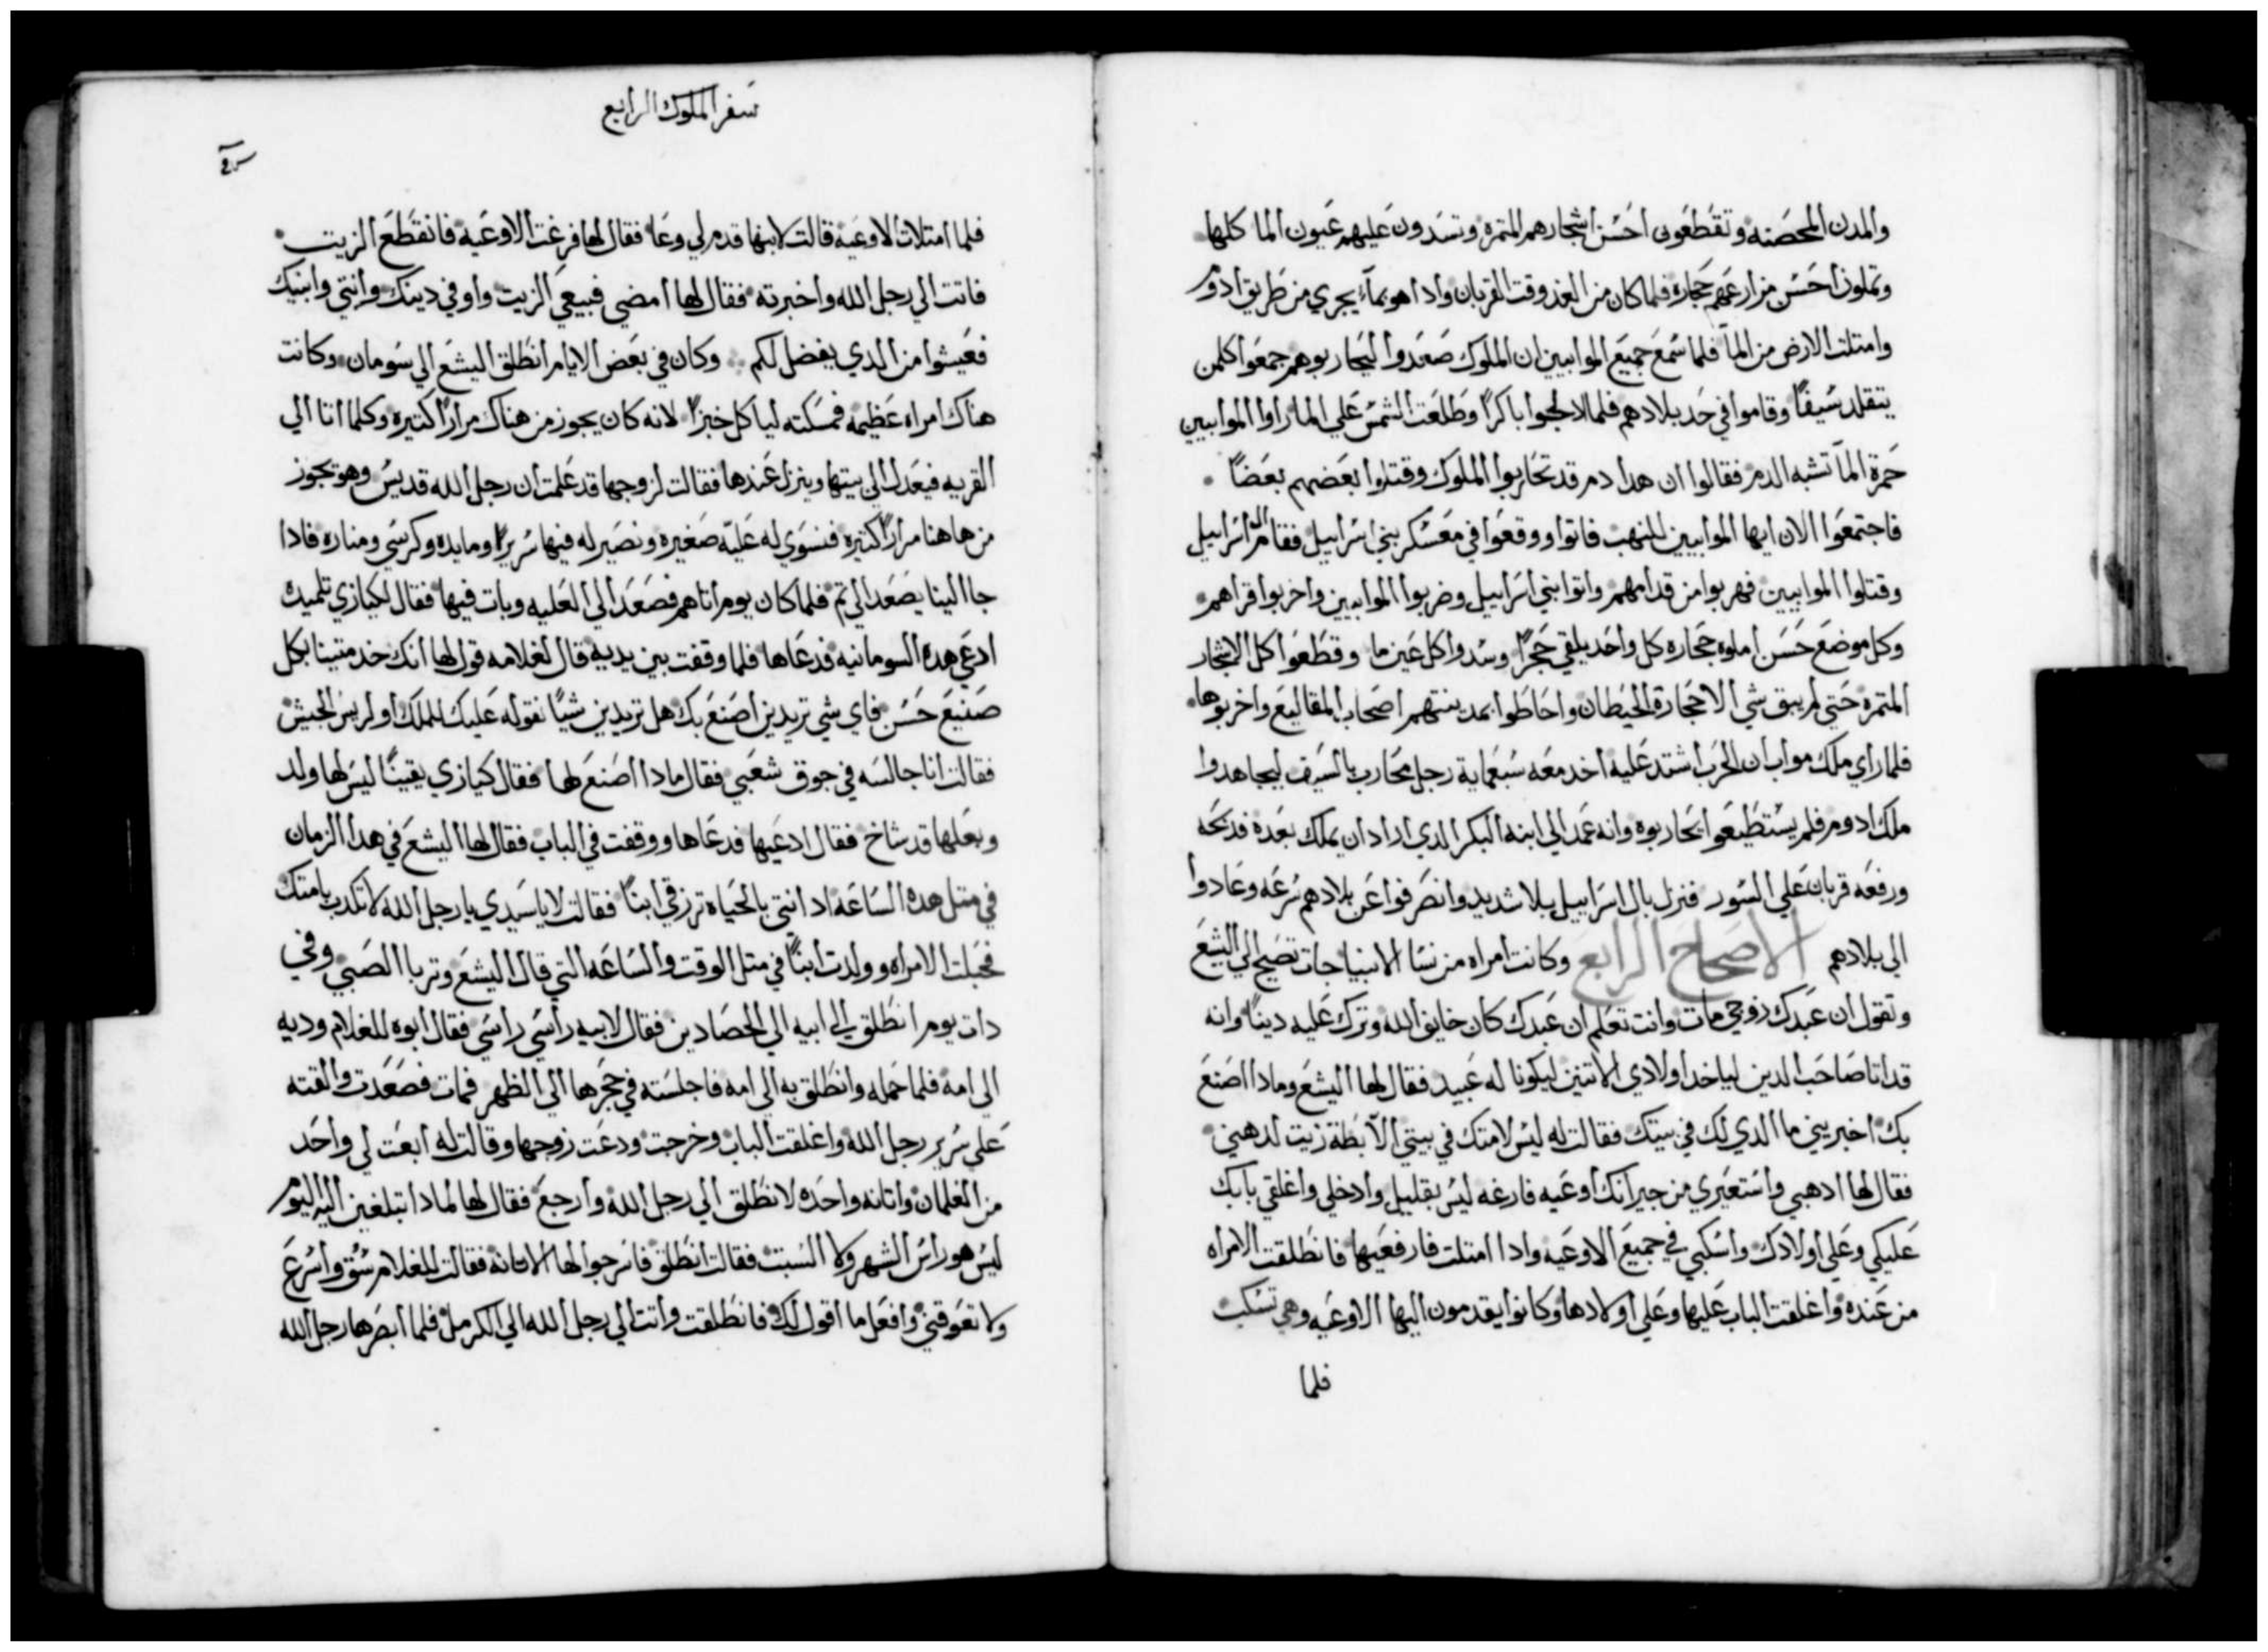 والمدن المحصنه وتقطعون احسن اشجارهم المتمرة وتسدون عليهم عيون الما كلها
وتملون احسن مزارعهم حجارة فلما كان من الغد وقت القربان وادا هو بمآء يجري من طريق ادوم
وامتلت الارض من المآ فلما سمع جميع الموابيين ان الملوك صعدوا ليحاربوهم جمعوا كلمن
يتقلد سيفًا وقاموا في حد بلادهم فلما ادلجوا باكرًا وطلعت الشمس علي الما راوا الموابيين
حمرة المآ تشبه الدم فقالوا ان هدا دم قد تحاربوا الملوك وقتلوا بعضهم بعضًا
فاجتمعوا الان ايها الموابيين للنهب فاتوا ووقعوا في معسكر بني اسراييل فقام ال اسراييل
وقتلوا الموابيين فهربوا من قدامهم واتوا بني اسراييل وضربوا الموابيين واخربوا قراهم
وكل موضع حسن املوه حجاره كل واحد يلقي حجرًا وسدوا كل عين ما وقطعوا كل الاشجار
المتمرة حتي لم يبق شي الا حجارة الحيطان واحاطوا بمدينتهم اصحاب المقاليع واخربوها
فلما راي ملك مواب ان الحرب اشتد عليه اخد معه سبعماية رجل محارب بالسيف ليجاهدوا
ملك ادوم فلم يستطيعوا يحاربوه وانه عمد الي ابنه البكر الدي اراد ان يملك بعده فدبحه
ورفعه قربان علي السور فنزل بال اسراييل بلا شديد وانصرفوا عن بلادهم سرعه وعادوا
الي بلادهم الاصحاح الرابع وكانت امراه من نسا الانبيا جات تصيح الي اليشع
وتقول ان عبدك زوجي مات وانت تعلم ان عبدك كان خايف الله وترك عليه دينًا وانه
قد اتا صاحب الدين لياخد اولادي الاتنين ليكونا له عبيد فقال لها اليشع ومادا اصنع
بك اخبريني ما الدي لك في بيتك فقالت له ليس لامتك في بيتي الا بطة زيت لدهني
فقال لها ادهبي واستعيري من جيرانك اوعيه فارغه ليس بقليل وادخلي واغلقي بابك
عليكي وعلي اولادك واسكبي في جميع الاوعيه وادا امتلت فارفعيها فانطلقت الامراه
من عنده واغلقت الباب عليها وعلي اولادها وكانوا يقدمون اليها الاوعيه وهي تسكب
فلما
سفر الملوك الرابع
فلما امتلات الاوعيه قالت لابنها قدم لي وعا فقال لها فرغت الاوعيه فانقطع الزيت
فاتت الي رجل الله واخبرته فقال لها امضي فبيعي الزيت واوفي دينك وانتي وابنيك
فعيشوا من الدي يفضل لكم وكان في بعض الايام انطلق اليشع الي سومان وكانت
هناك امراه عظيمه فمسكته لياكل خبزًا لانه كان يجوز من هناك مرارًا كتيره وكلما اتا الي
القريه فيعدل الي بيتها وينزل عندها فقالت لزوجها قد علمت ان رجل الله قديس وهو يجوز
من هاهنا مرارًا كتيره فنسوي له عليّه صغيره ونصير له فيها سريرًا ومايده وكرسي ومناره فادا
جا الينا يصعد الي تم فلما كان يوم اتاهم فصعد الي العليه وبات فيها فقال لكيازي تلميده
ادعي هده السومانيه فدعاها فلما وقفت بين يديه قال لغلامه قول لها انك خدمتينا بكل
صنيع حسن فاي شي تريدين اصنع بك هل تريدين شيًا نقوله عليك للملك او لريس الجيش
فقالت انا جالسه في جوق شعبي فقال مادا اصنع لها فقال كيازي يقينًا ليس لها ولد
وبعلها قد شاخ فقال ادعيها فدعاها ووقفت في الباب فقال لها اليشع في هدا الزمان
في متل هده الساعه اد انتي بالحياه ترزقي ابنًا فقالت لا يا سيدي يا رجل الله لا تكدب بامتك
فحبلت الامراه وولدت ابنًا في متل الوقت والساعه التي قال اليشع وتربا الصبي وفي
دات يوم انطلق الي ابيه الي الحصادين فقال لابيه راسي راسي فقال ابوه للغلام وديه
الي امه فلما حمله وانطلق به الي امه فاجلسته في حجرها الي الظهر فمات فصعدت والقته
علي سرير رجل الله واغلقت الباب وخرجت ودعت زوجها وقالت له ابعت لي واحد
من الغلمان واتانه واحده لانطلق الي رجل الله وارجع فقال لها لمادا تبلغين اليه اليوم
ليس هو راس الشهر ولا السبت فقالت انطلق فاسرجوا لها الاتانه فقالت للغلام سُق واسرع
ولا تعوقني وافعل ما اقول لك فانطلقت واتت الي رجل الله الي الكرمل فلما ابصرها رجل الله